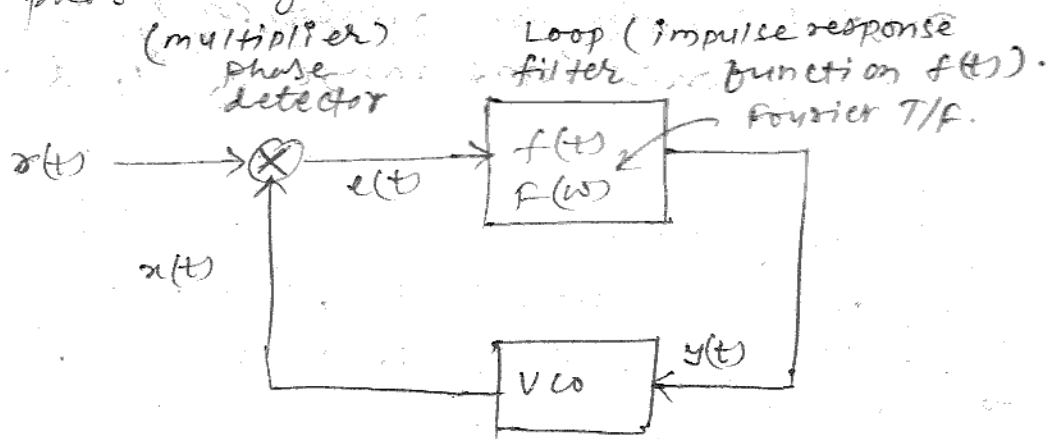 (multiplier)
phase
detector
Loop (impulse response
filter function f(t)).
Fourier T/F.
r(t)
e(t)
f(t)
F(ω)
x(t)
y(t)
VCO